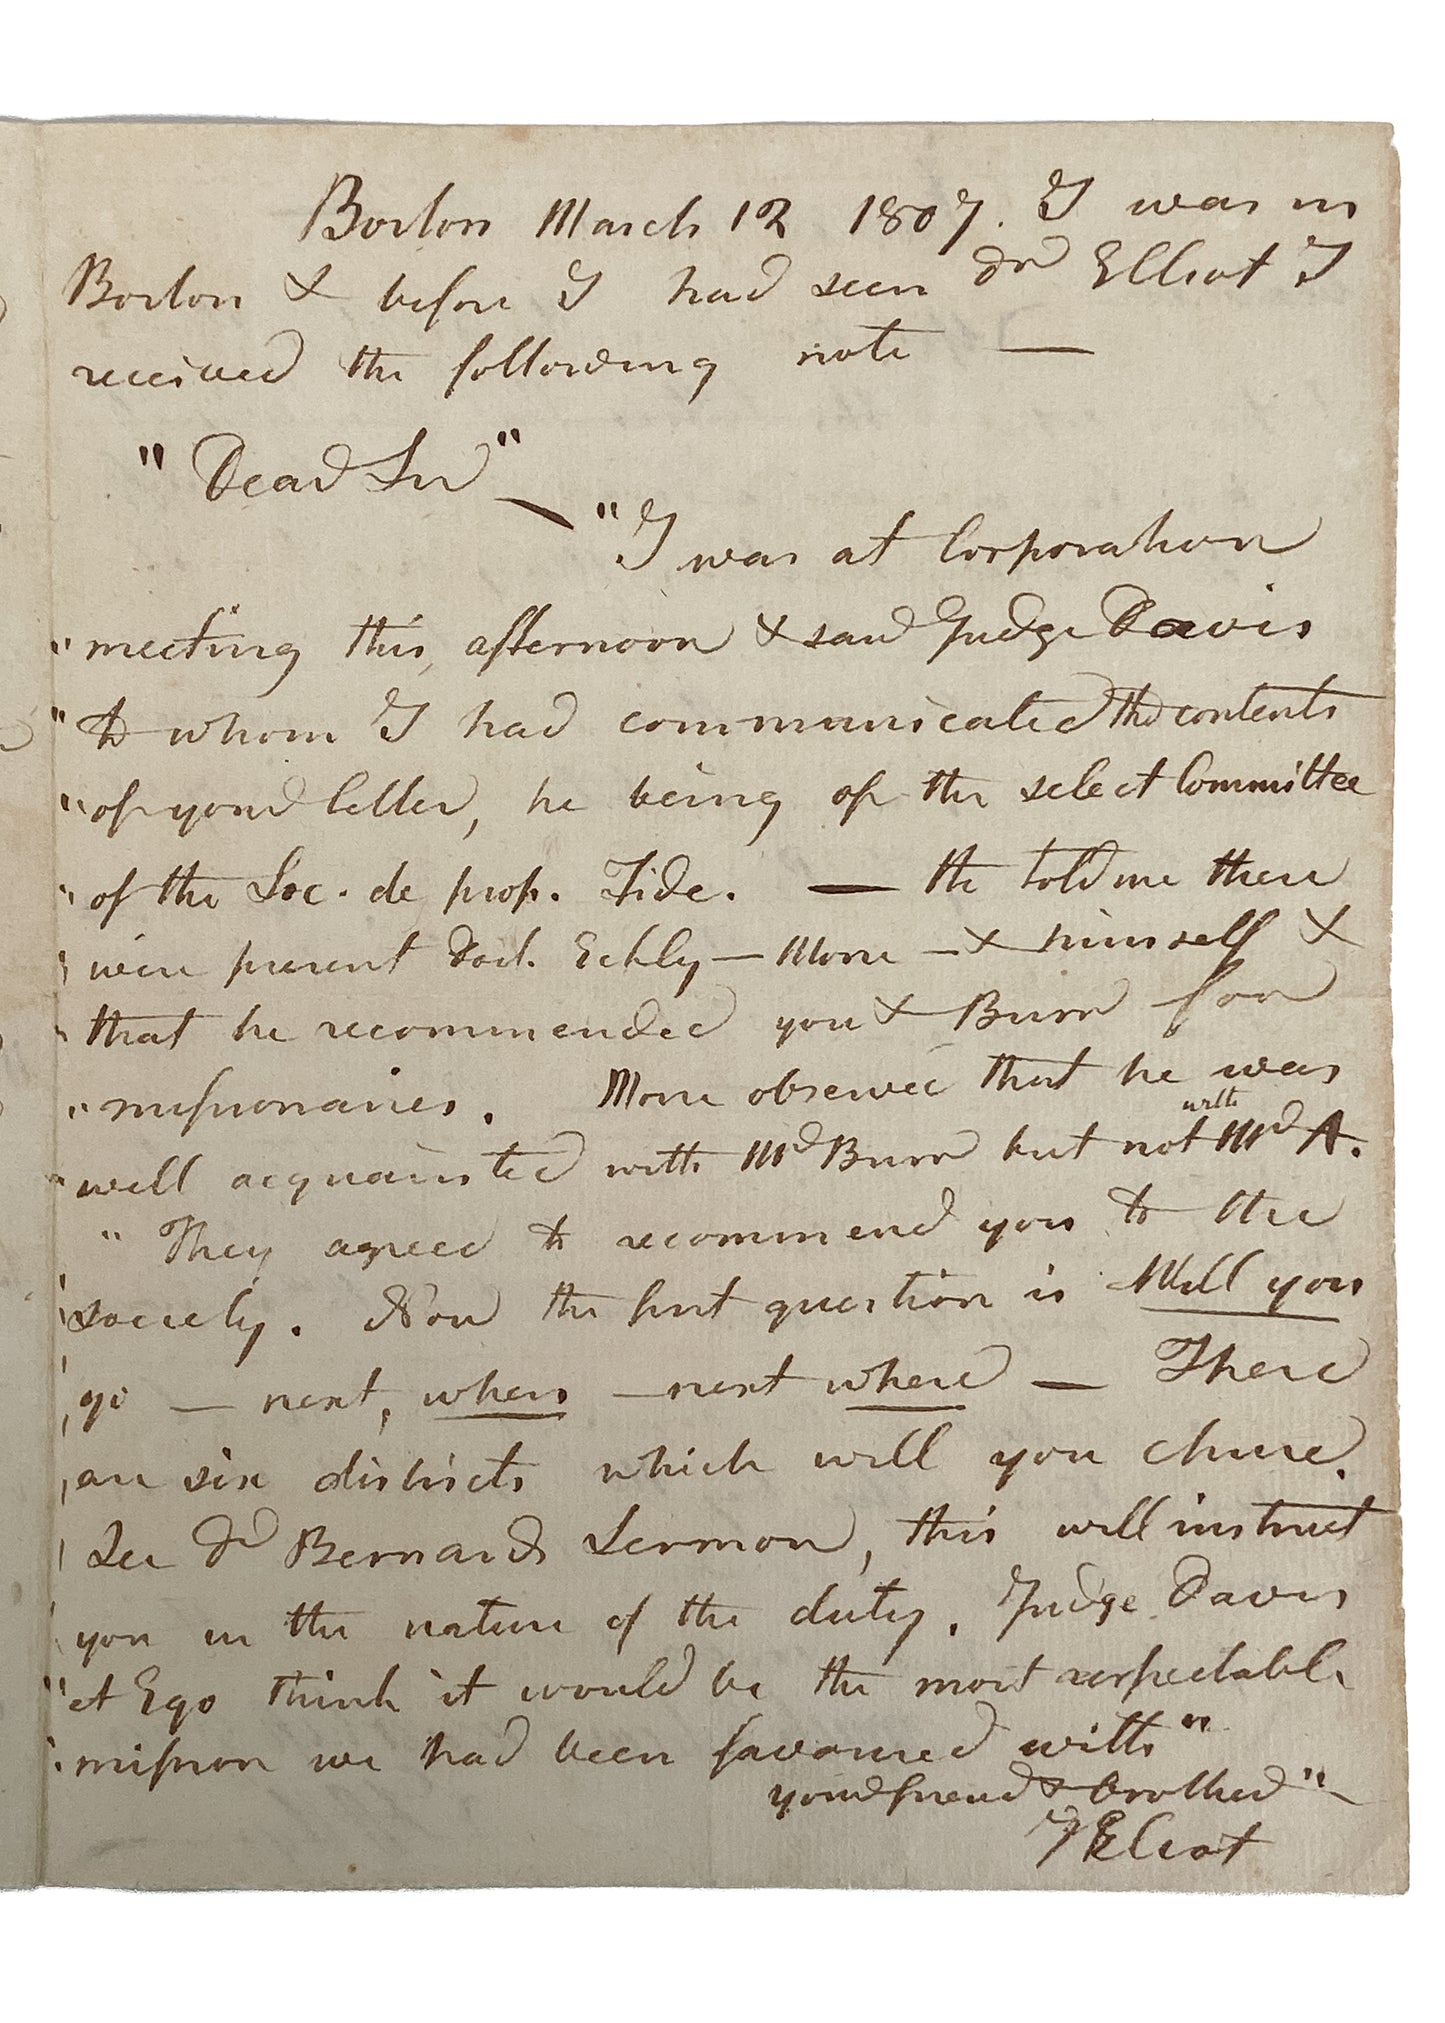 Boston March 12 1807. I was in
Boston & before I had seen Dr Elliot I
received the following note —
"Dear Sir" —
"I was at Corporation
" meeting this, afternoon & saw Judge Davis
" to whom I had communicated the contents
" of your letter, he being of the select Committee
" of the Soc. de prop. Fide. — He told me there
" were present Doct. Eckly — Morse — & himself &
" that he recommended you & Burr for
" missionaries. Morse observed that he was
" well acquainted with Mr Burr but not with Mr A.
" They agreed to recommend you to the
" society. Now the first question is Will you
" go — next, when — next where — There
" are six districts which will you chuse.
" See Dr Bernards Sermon, this will instruct
" you in the nature of the duty. Judge Davis
" et Ego think it would be the most respectable
" mission we had been favoured with"
your friend & brother"
J Eliot